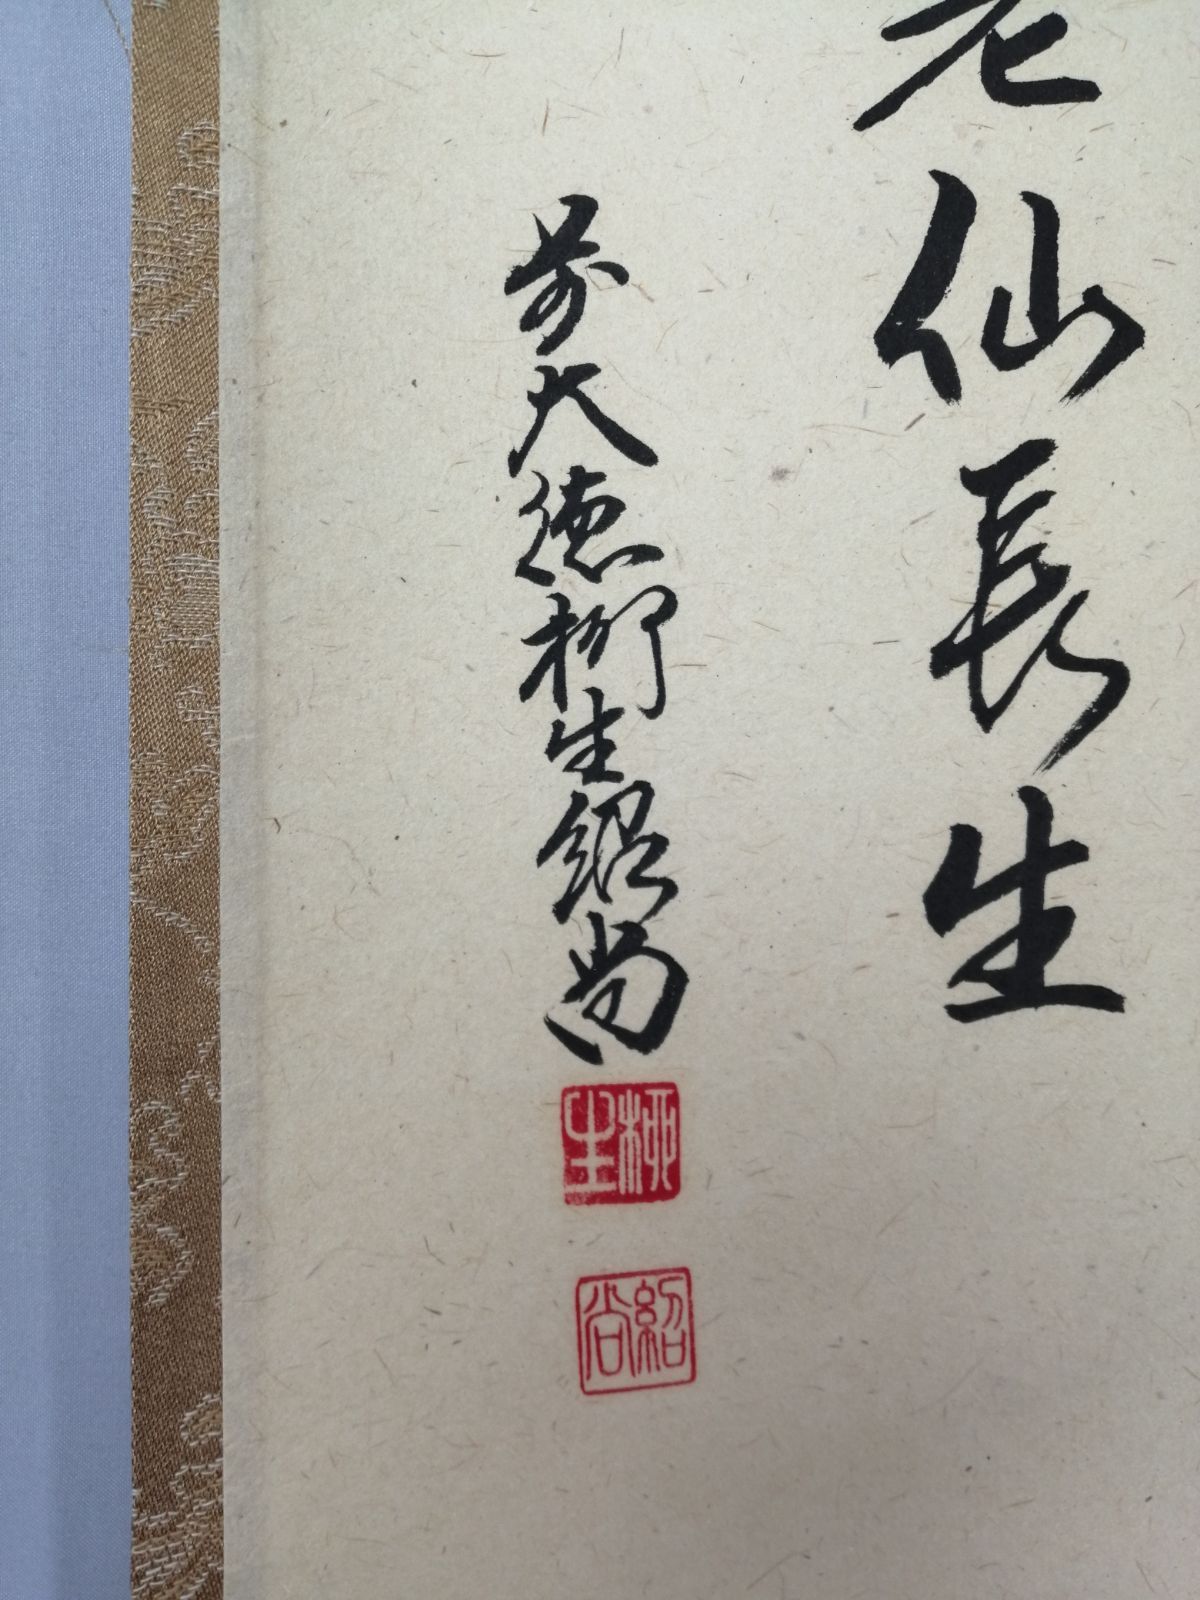 老仙長生
前大徳柳生紹尚
柳生
紹尚